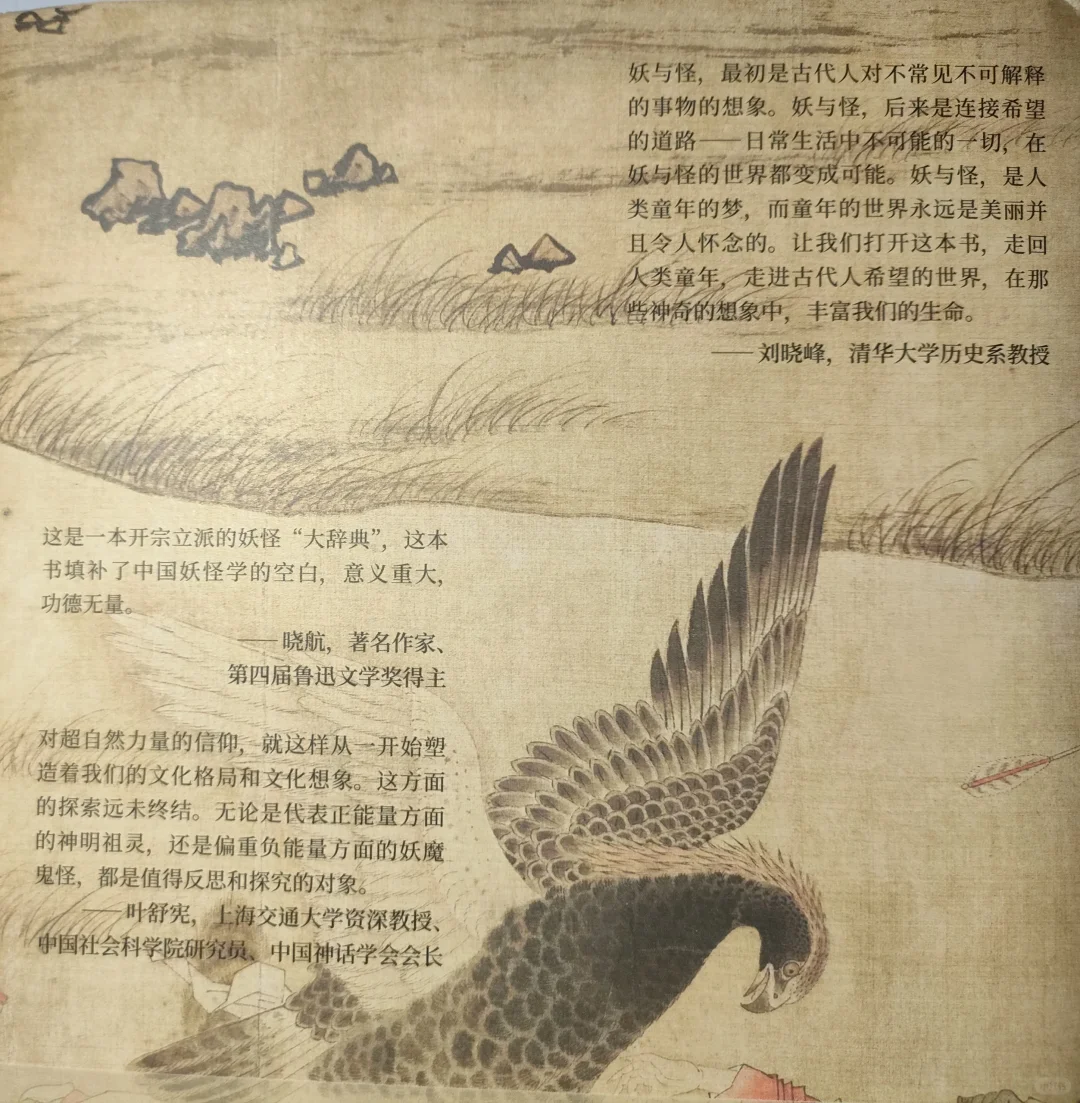 妖与怪，最初是古代人对不常见不可解释
的事物的想象。妖与怪，后来是连接希望
的道路——日常生活中不可能的一切，在
妖与怪的世界都变成可能。妖与怪，是人
类童年的梦，而童年的世界永远是美丽并
且令人怀念的。让我们打开这本书，走回
人类童年，走进古代人希望的世界，在那
些神奇的想象中，丰富我们的生命。
——刘晓峰，清华大学历史系教授
这是一本开宗立派的妖怪“大辞典”，这本
书填补了中国妖怪学的空白，意义重大，
功德无量。
——晓航，著名作家、
第四届鲁迅文学奖得主
对超自然力量的信仰，就这样从一开始塑
造着我们的文化格局和文化想象。这方面
的探索远未终结。无论是代表正能量方面
的神明祖灵，还是偏重负能量方面的妖魔
鬼怪，都是值得反思和探究的对象。
——叶舒宪，上海交通大学资深教授、
中国社会科学院研究员、中国神话学会会长